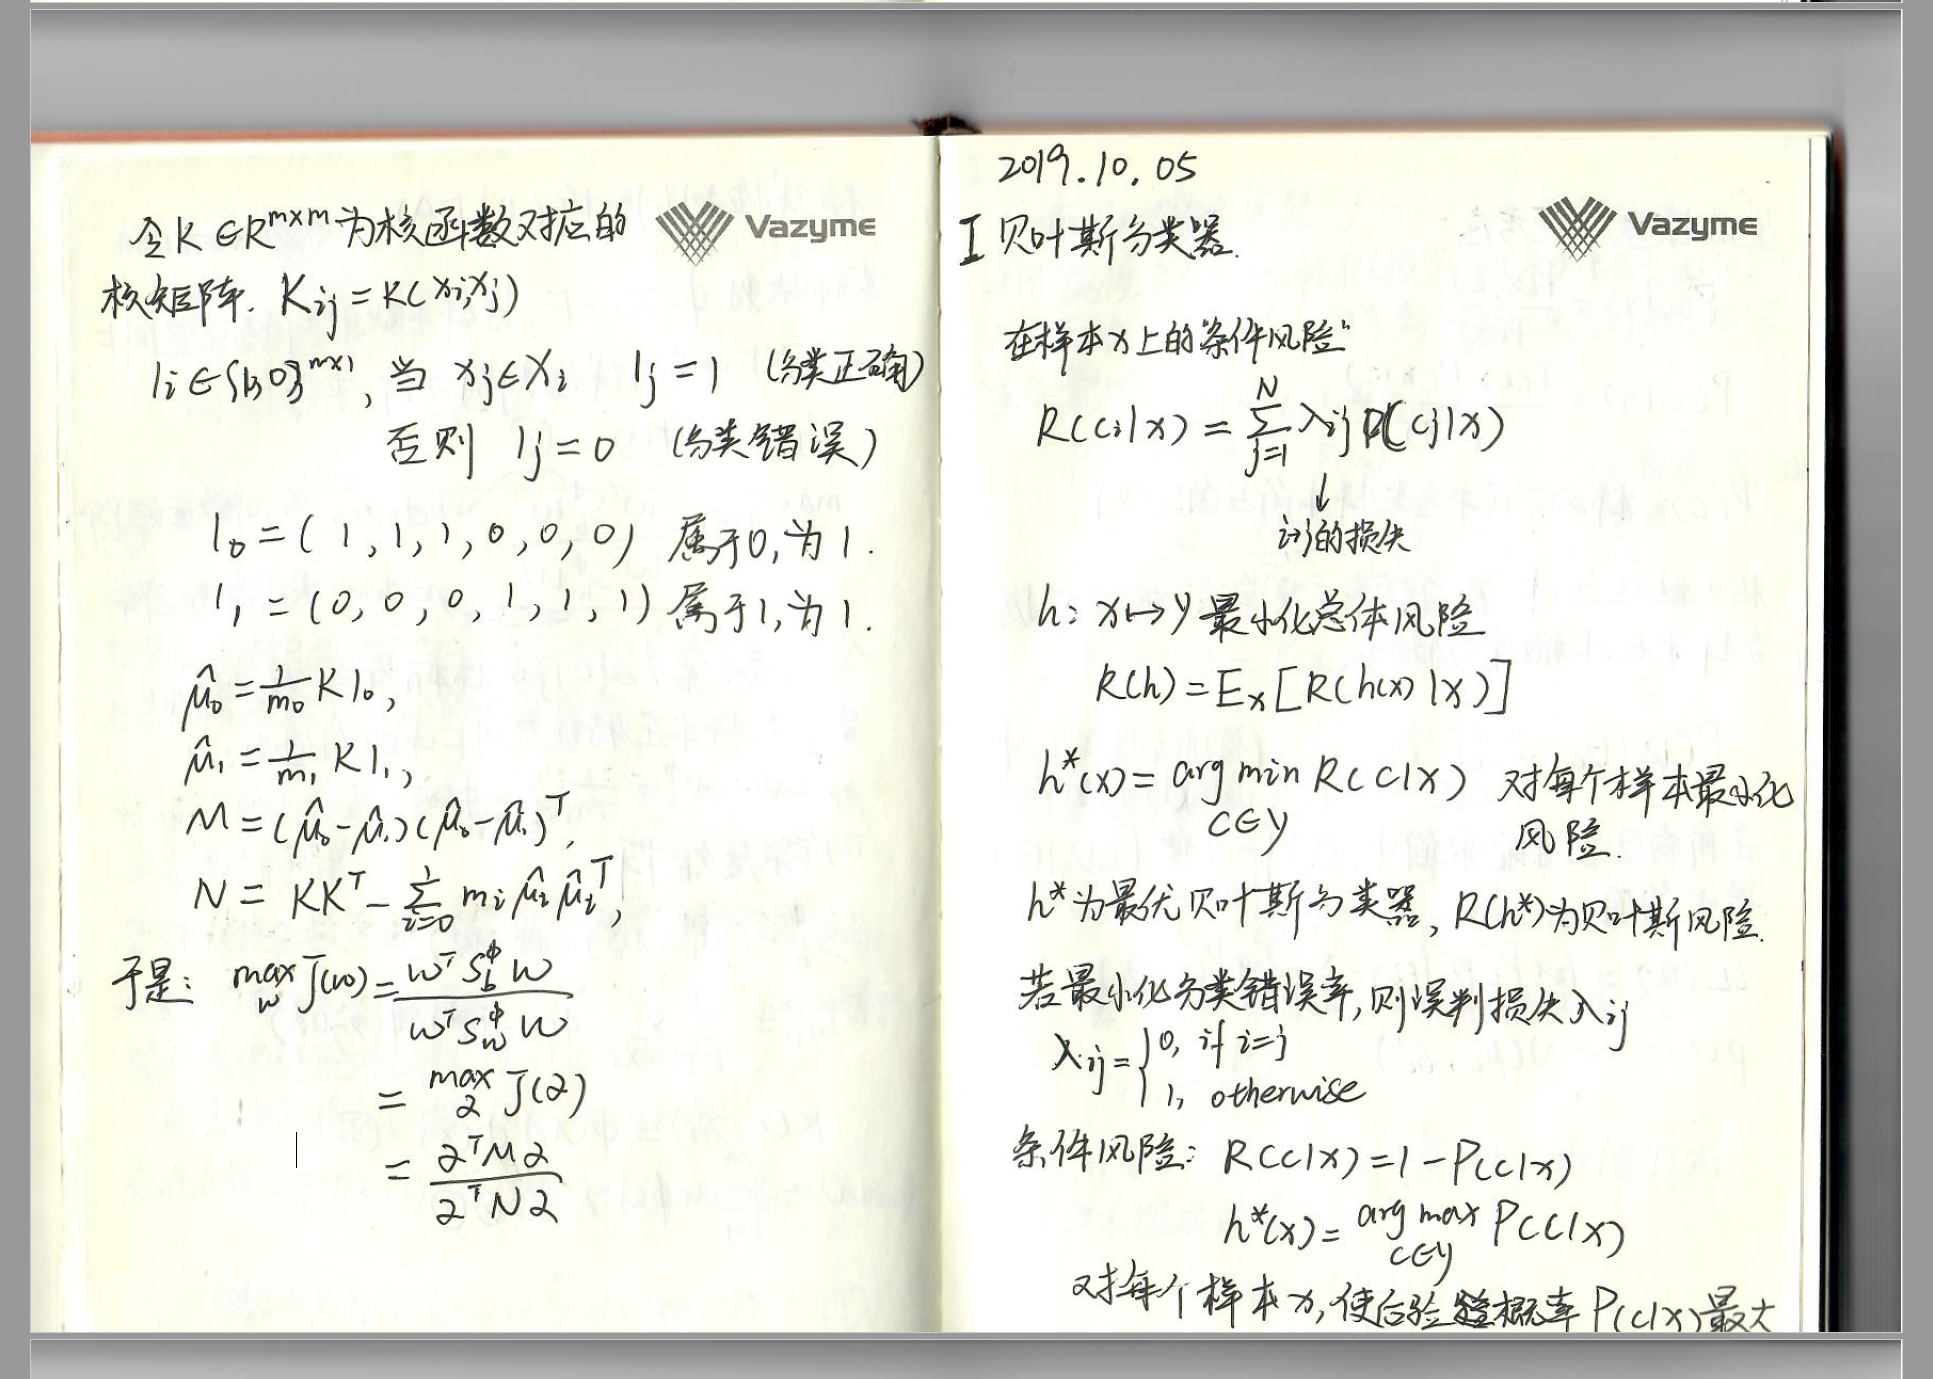 令K∈R^{m×m}为核函数对应的
Vazyme
核矩阵. K_{ij}=K(x_i,x_j)
1_i∈{1,0}^{m×1}, 当 x_j∈X_i 1_j=1 (分类正确)
否则 1_j=0 (分类错误)
1_0=(1,1,1,0,0,0) 属于0,为1.
1_1=(0,0,0,1,1,1) 属于1,为1.
μ̂_0=\frac{1}{m_0}K1_0,
μ̂_1=\frac{1}{m_1}K1_1,
M=(μ̂_0-μ̂_1)(μ̂_0-μ̂_1)^T,
N=KK^T-\sum_{i=0}^{1}m_iμ̂_iμ̂_i^T,
于是: \max_w J(w)=\frac{w^T S_b^Φ w}{w^T S_w^Φ w}
=\max_α J(α)
=\frac{α^T M α}{α^T N α}
2019.10.05
I 贝叶斯分类器.
Vazyme
在样本x上的"条件风险"
R(c_i|x)=\sum_{j=1}^{N}λ_{ij}P(c_j|x)
↓
i→j的损失
h: x↦y 最小化总体风险
R(h)=E_x[R(h(x)|x)]
h*(x)=\arg\min_{c∈y}R(c|x) 对每个样本最小化
风险.
h*为最优贝叶斯分类器, R(h*)为贝叶斯风险.
若最小化分类错误率,则误判损失λ_{ij}
λ_{ij}={0, if i=j
1, otherwise
条件风险: R(c|x)=1-P(c|x)
h*(x)=\arg\max_{c∈y}P(c|x)
对每个样本x,使后验概率P(c|x)最大